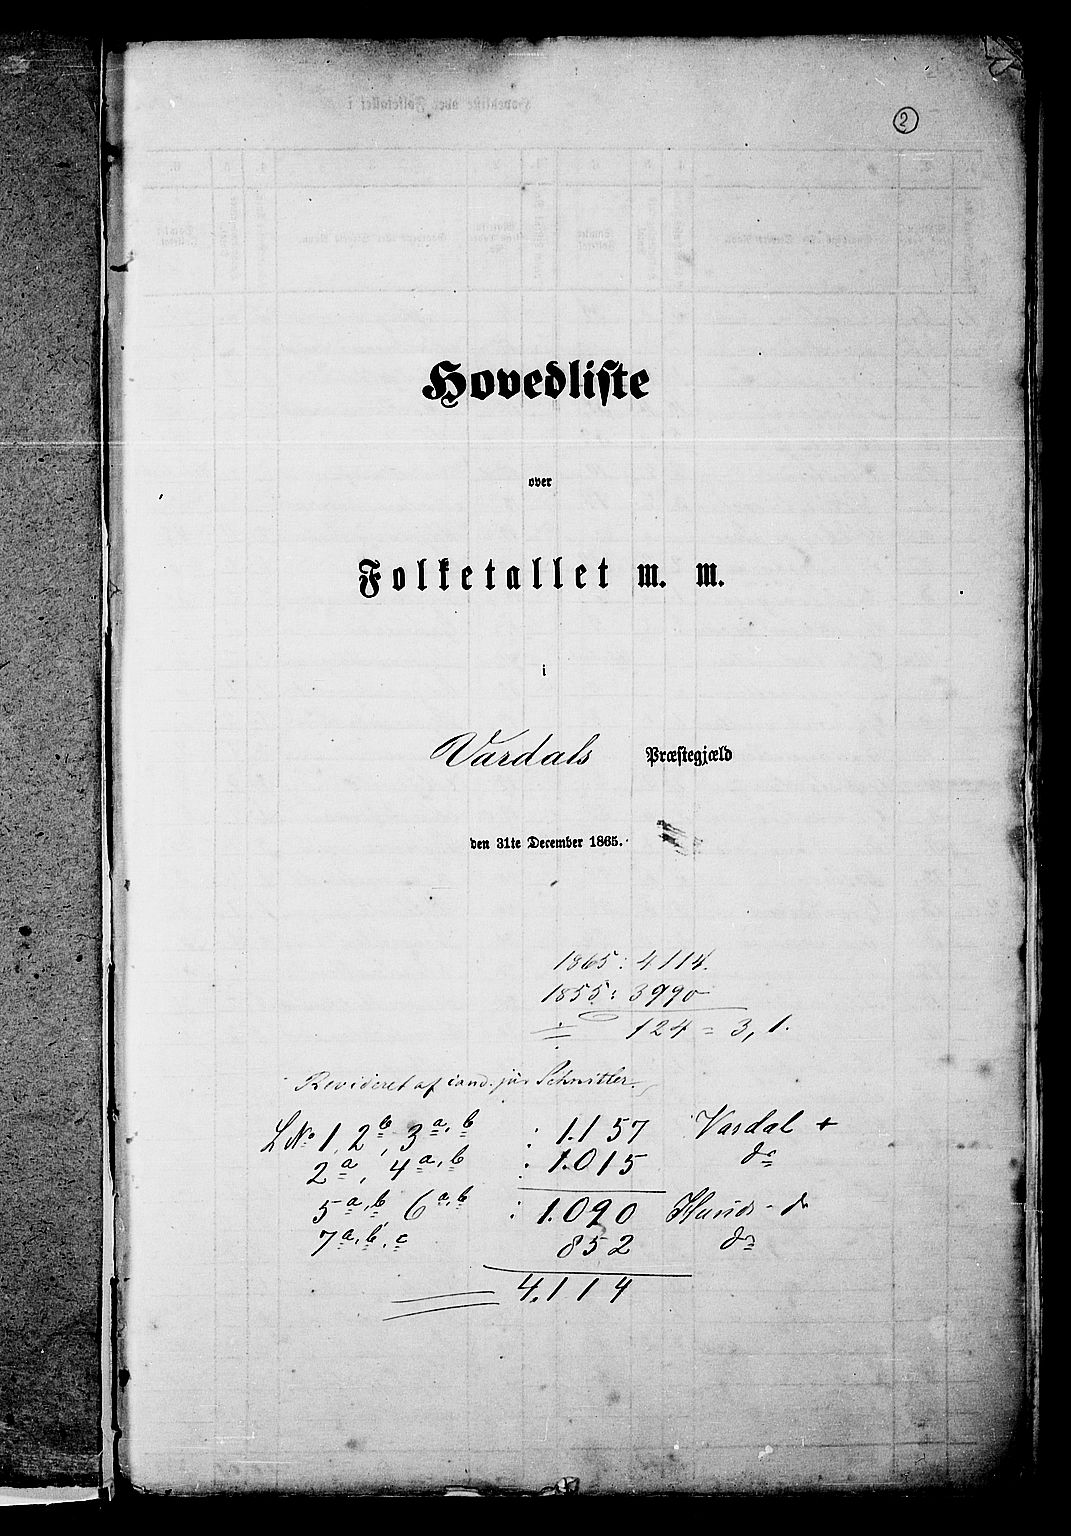 2
Hovedliste
over
Folketallet m. m.
i
Vardals Præstegjæld
den 31te December 1865.
1865: 4114.
1855: 3990
÷ 124 = 3,1.
Revideret af cand. jur Schnitler.
L No 1, 2b, 3a,b : 1.157 Vardal +
2a, 4a,b : 1.015 do
5a,b 6a,b : 1.090
7a,b,c 852 do
4.114